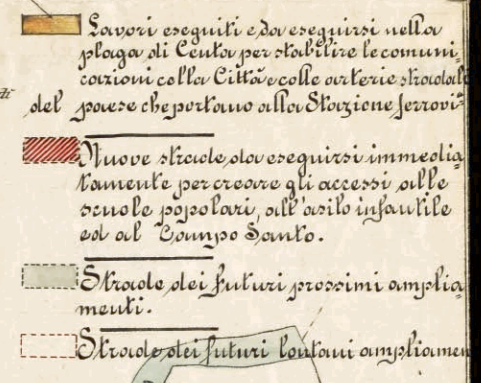 Lavori eseguiti e da eseguirsi nella
plaga di Centa per stabilire le comuni-
cazioni colla Città e colle arterie stradali
del paese che portano alla Stazione ferrovi-
Nuove strade, da eseguirsi immedia-
tamente per creare gli accessi alle
scuole popolari, all'asilo infantile
ed al Campo Santo.
Strade dei futuri prossimi amplia-
menti.
Strade dei futuri lontani ampliamen